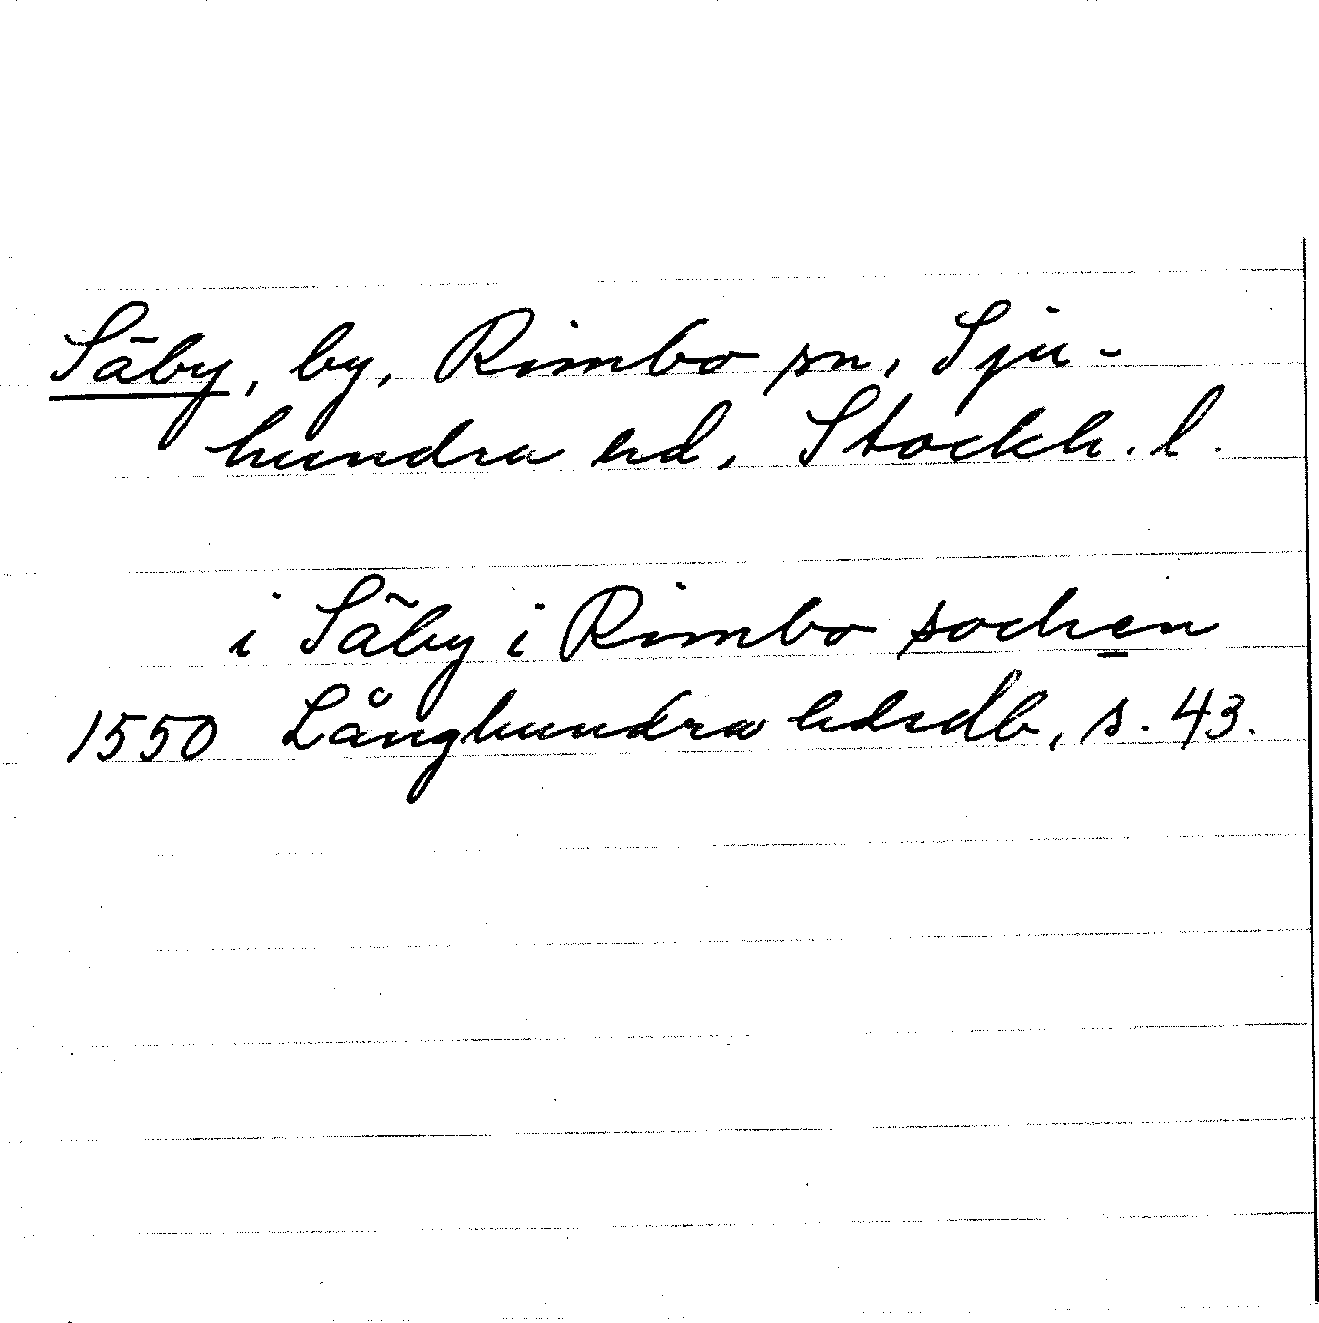 Säby, by, Rimbo sn, Sju-
hundra hd, Stockh. l.
i Säby i Rimbo sochen
1550 Långhundra hdrdb, s. 43.